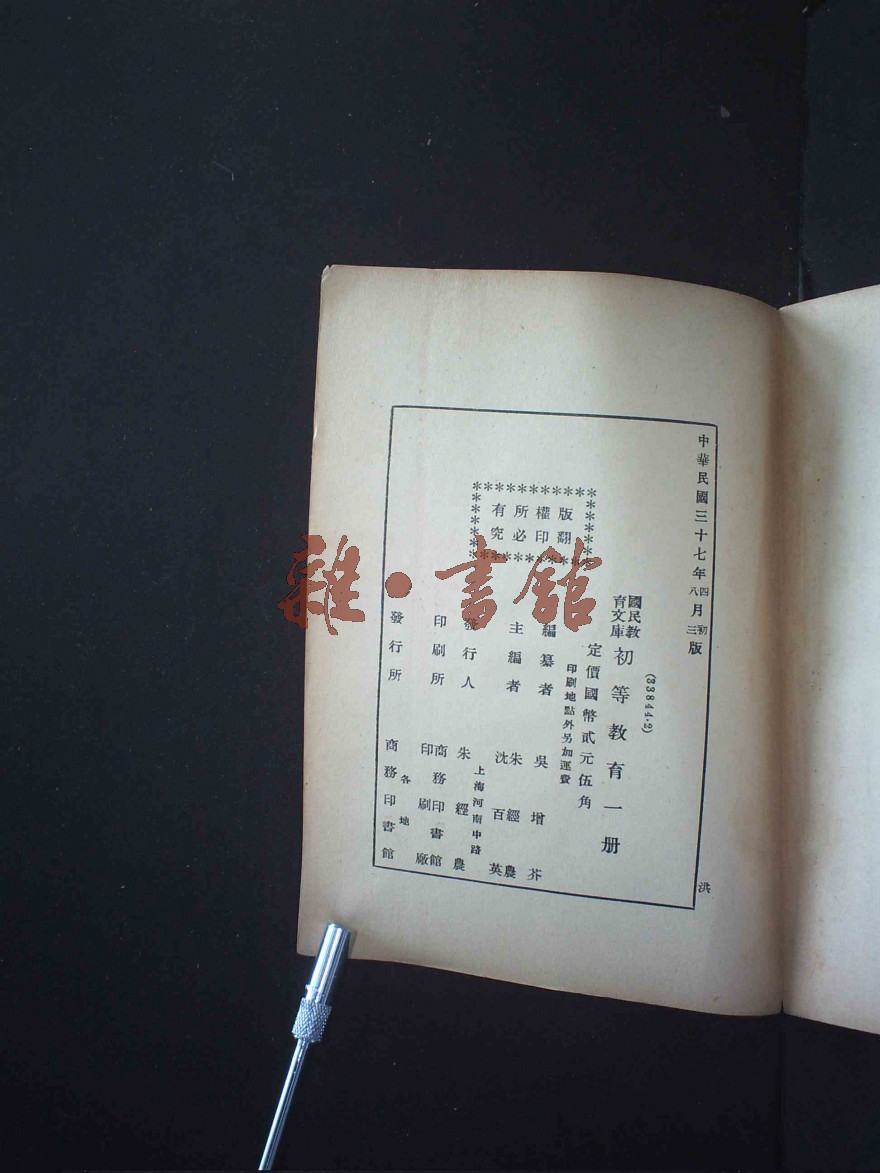 中華民國三十七年四月初版
八 三
(33844·2)
國民教育文庫 初等教育一册
定價國幣貳元伍角
印刷地點外另加運費
版權所有
翻印必究
編纂者 吳增芥
主編者 朱經農
沈百英
發行人 朱經農
上海河南中路
印刷所 商務印書館
印刷廠
發行所 商務印書館
各地
洪
雜·書館